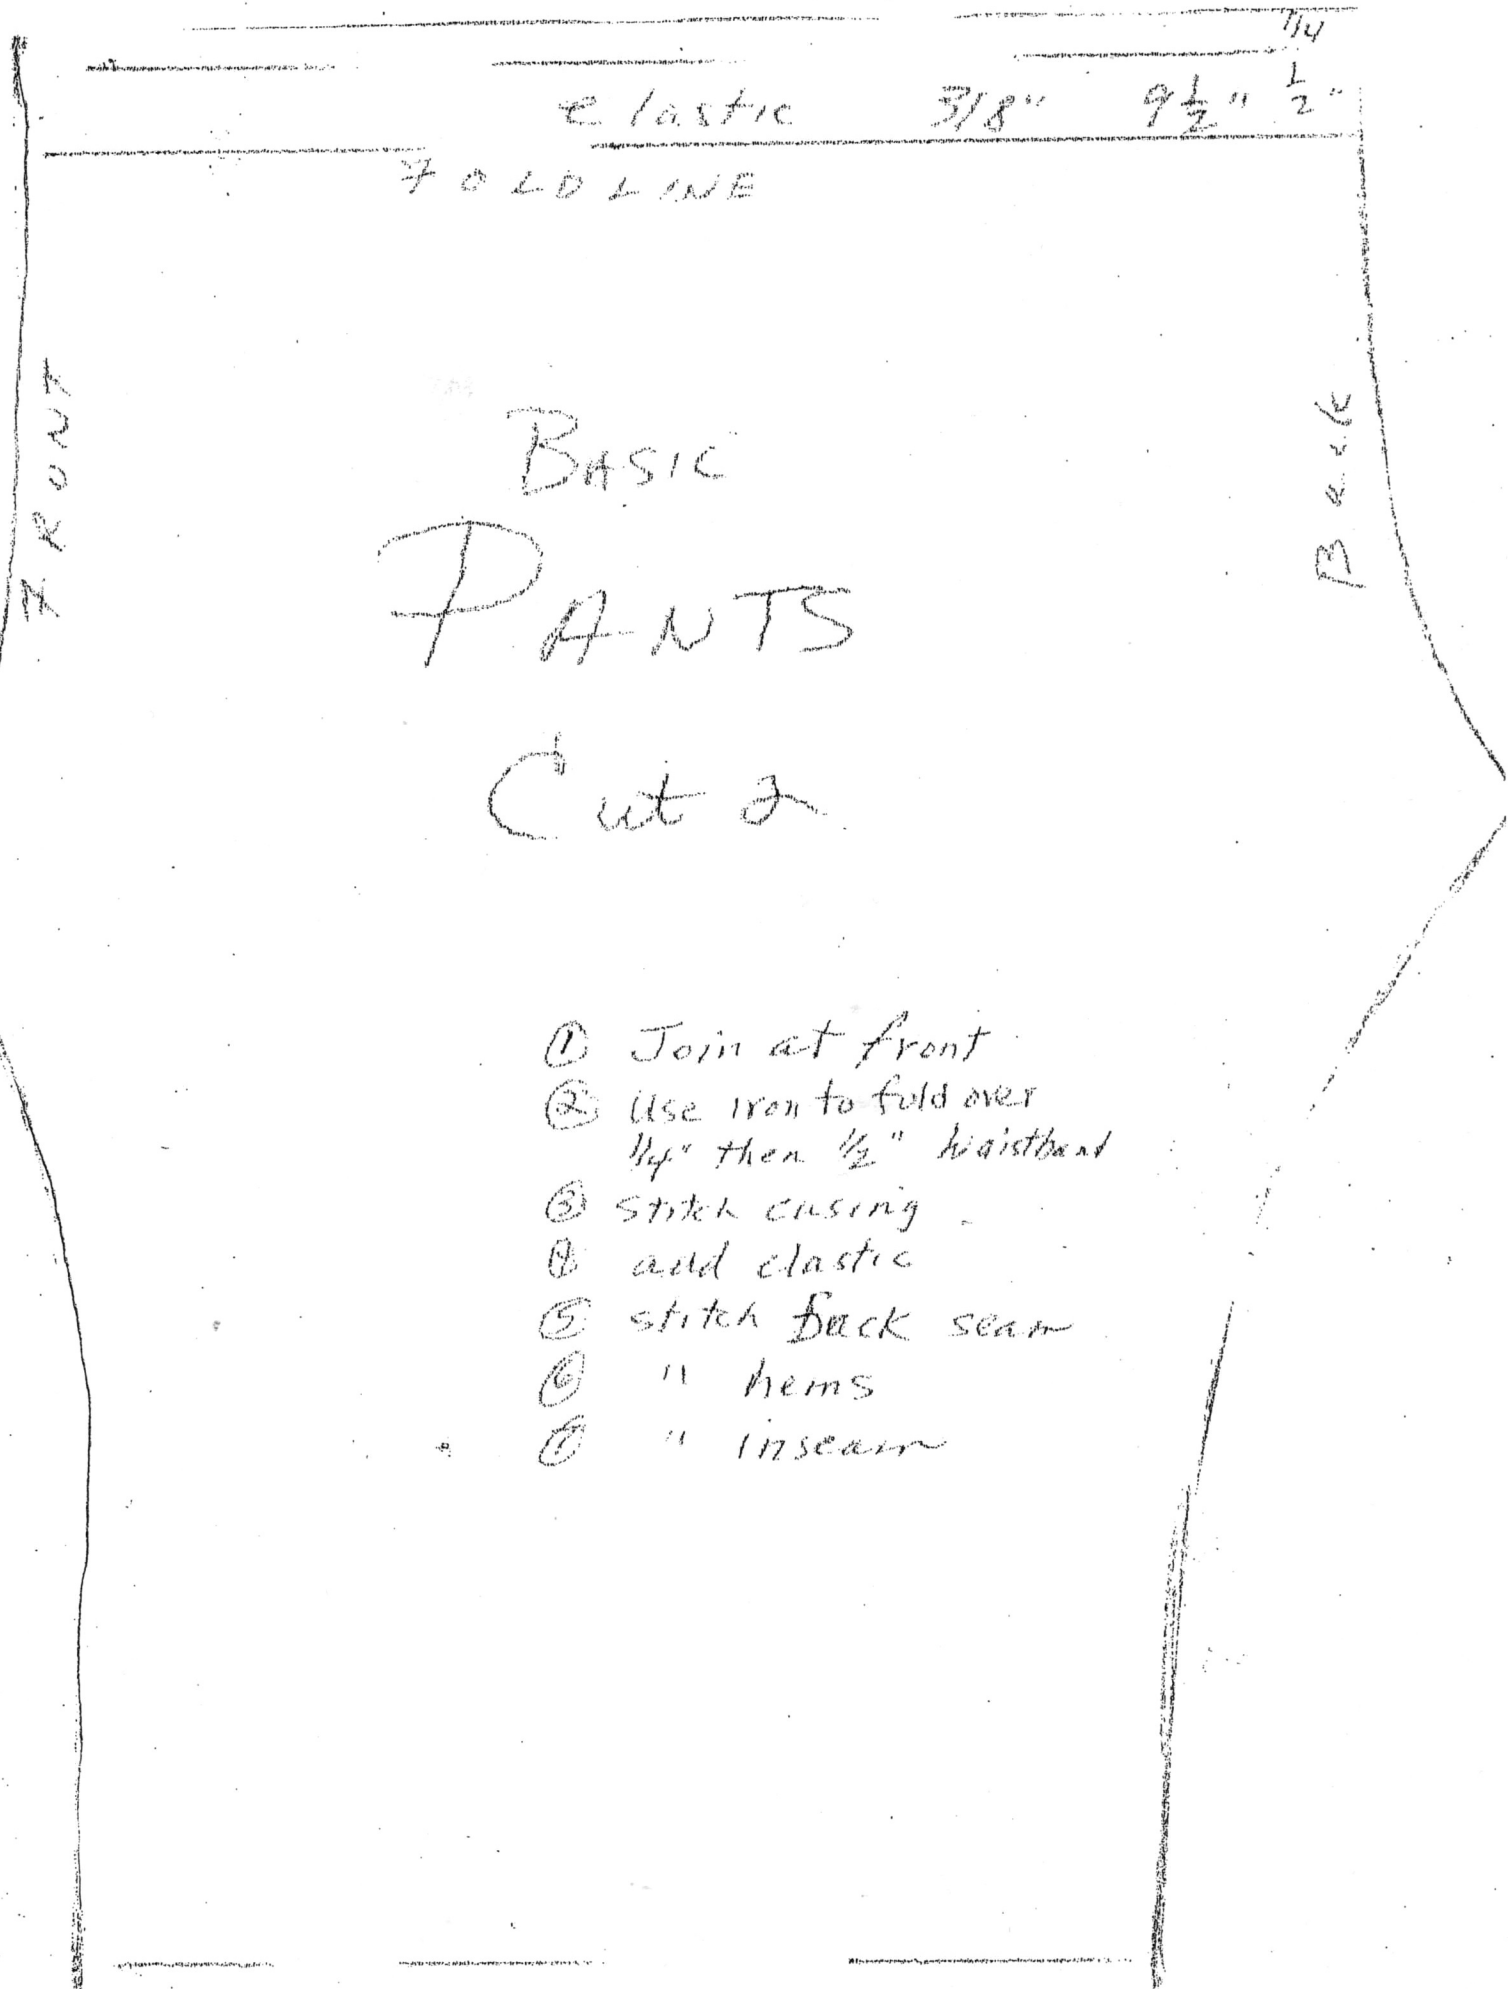 1/4
elastic 3/8" 9 1/2" 1/2"
FOLDLINE
FRONT
Back
BASIC
PANTS
Cut 2
① Join at front
② Use iron to fold over
1/4" then 1/2" waistband
③ Stitch casing
④ add elastic
⑤ stitch back seam
⑥ " hems
⑦ " inseam